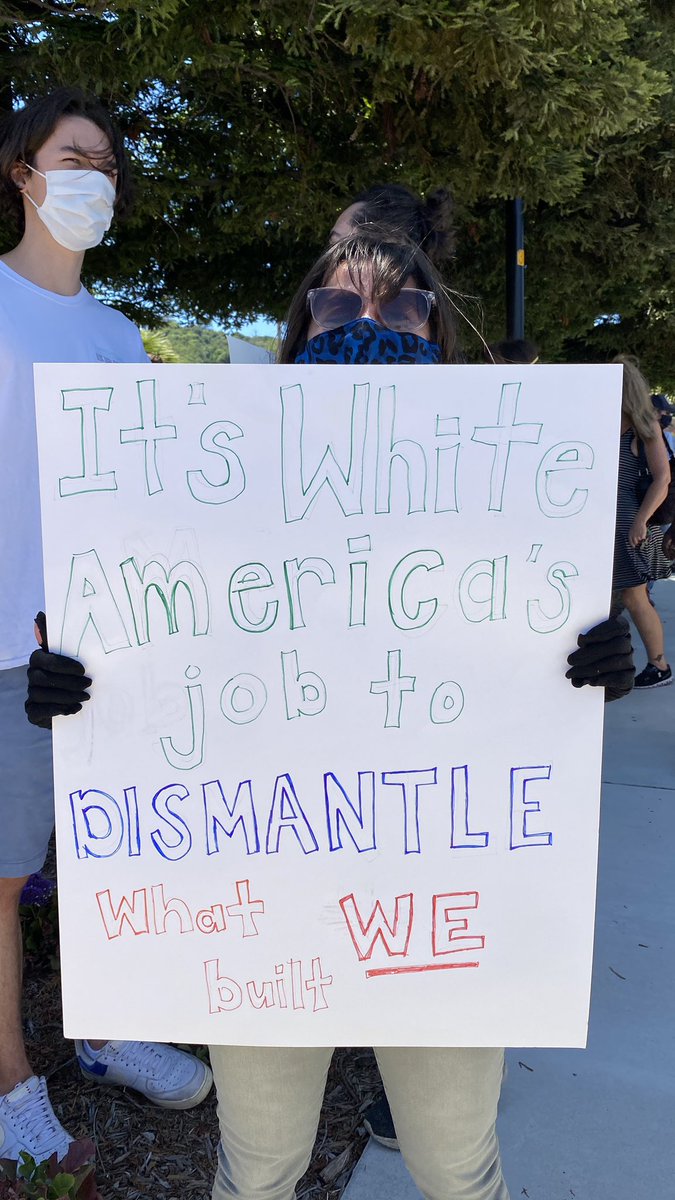 It's White
America's
job to
DISMANTLE
What WE
built